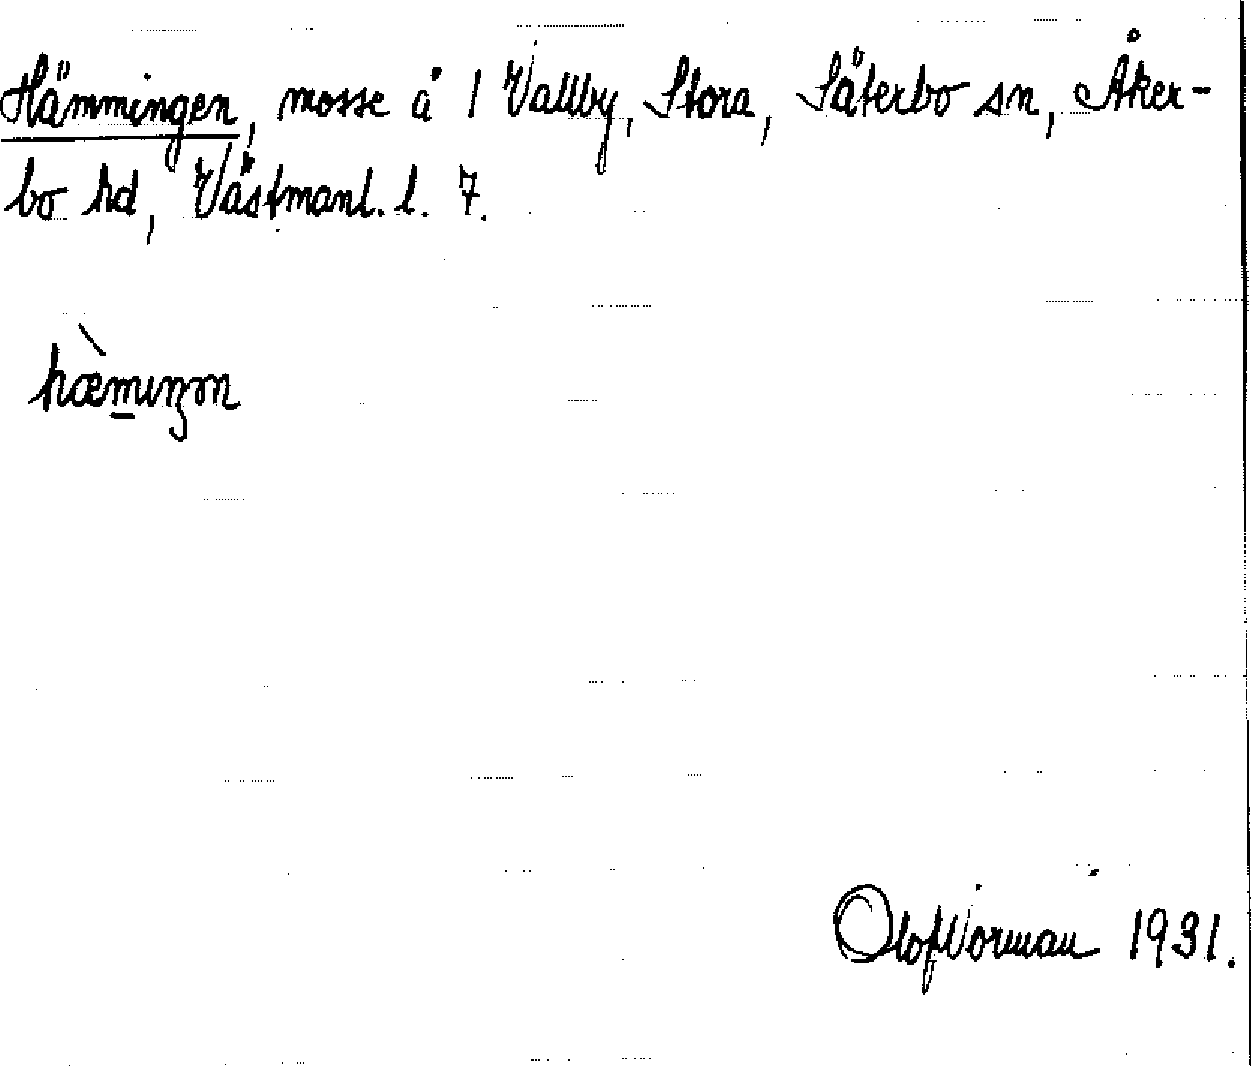 Hämmingen, mosse å 1 Vallby, Stora, Säterbo sn, Åker-
bo hd, Västmanl. l. 7.
hæ̀mıŋən
Olof Vorman 1931.